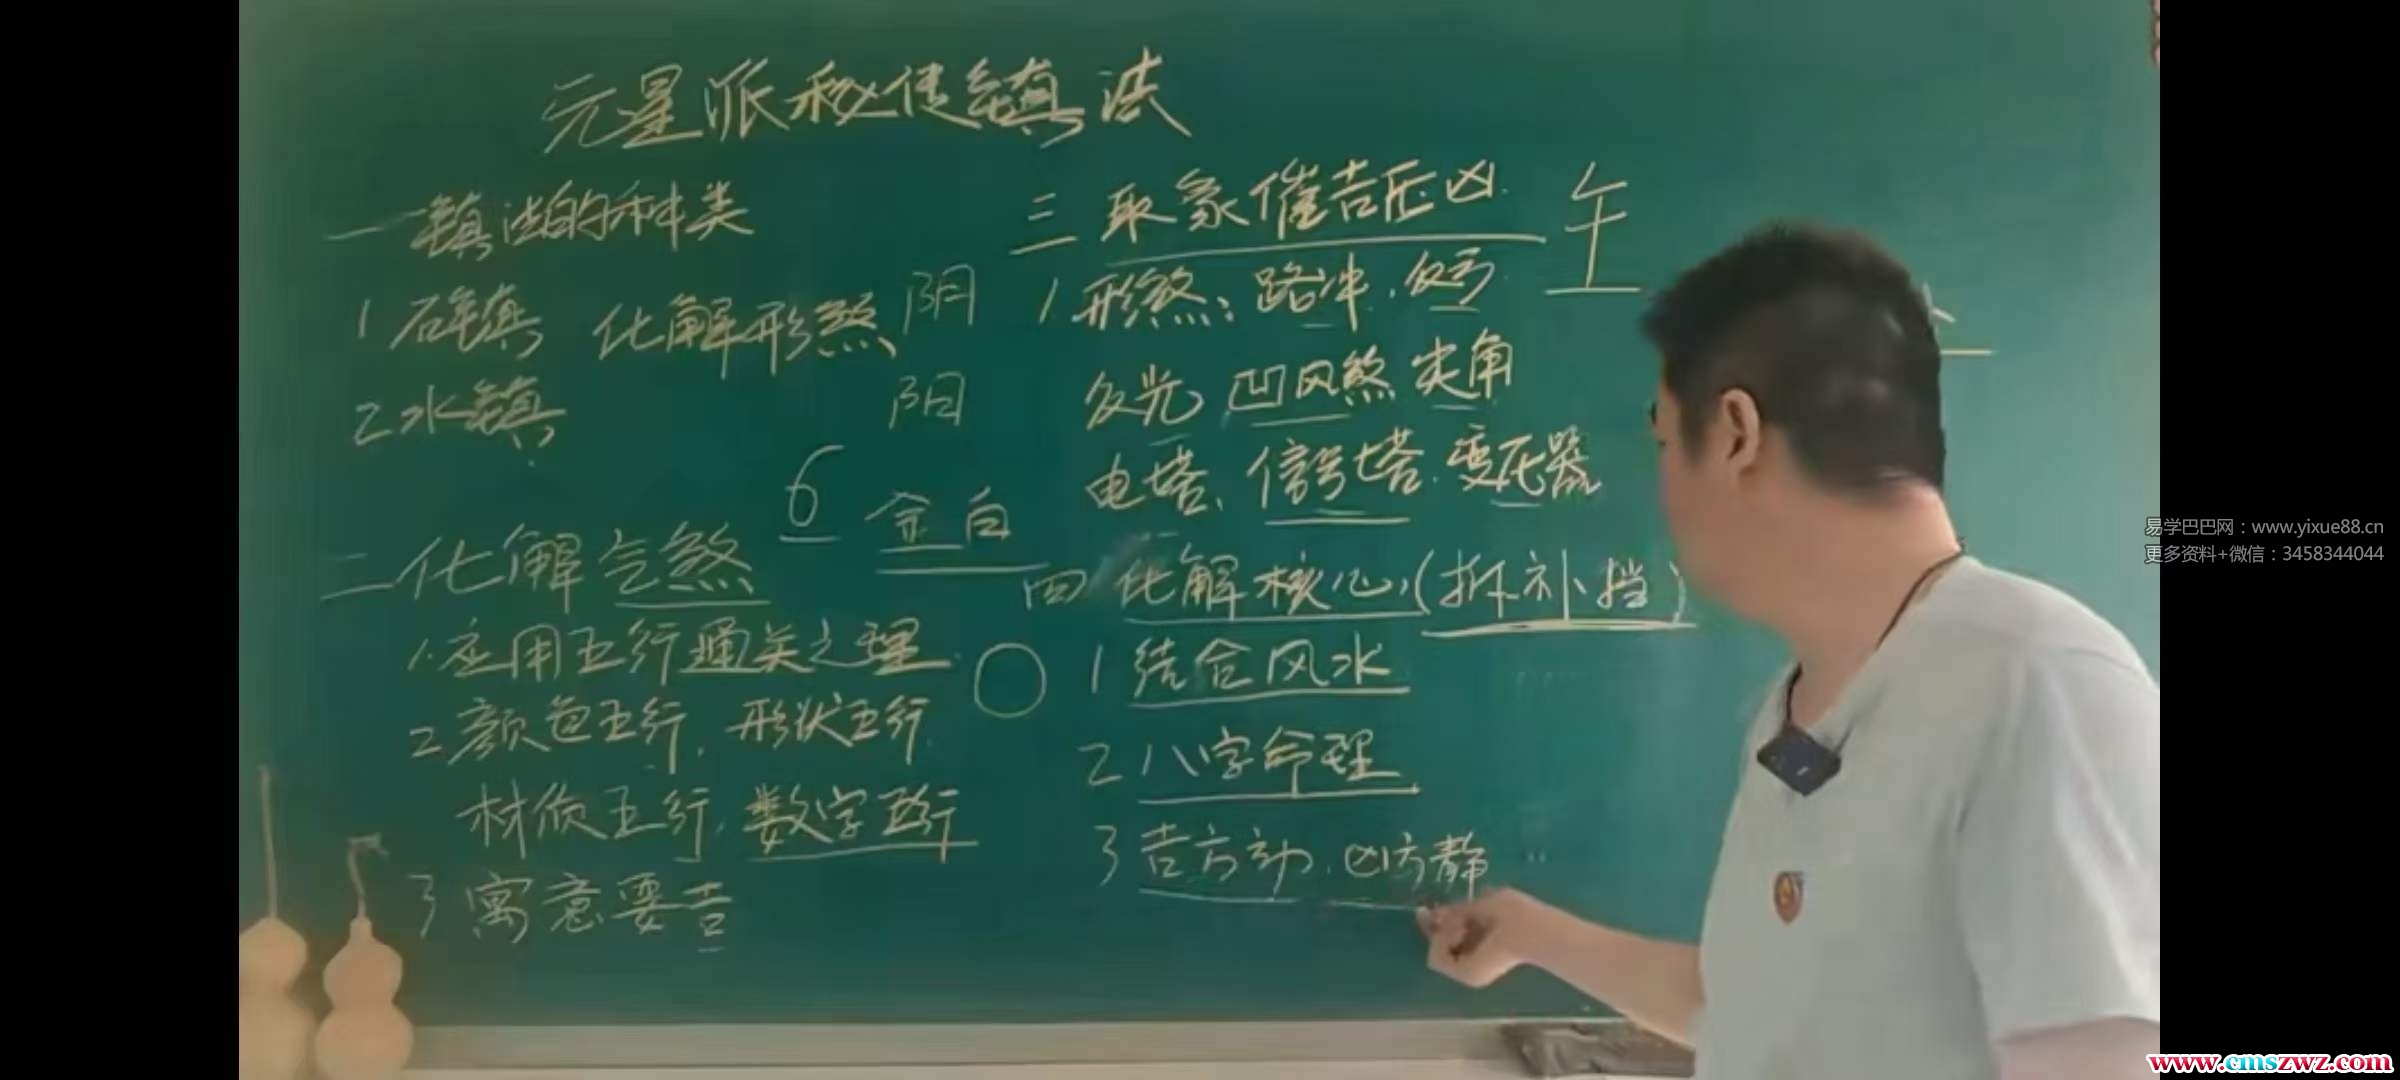 元星派秘传镇法
一 镇法的种类
1 石镇 化解形煞 阴
2 水镇 阳
6 金 白
二 化解气煞
1. 应用五行通关之理
2 颜色五行, 形状五行
材质五行, 数字五行
3 寓意要吉
三 取象催吉压凶 午
1 形煞: 路冲, 反弓
反光 凹风煞 尖角
电塔、信号塔、变压器
四 化解核心(拆补挡)
1 结合风水
2 八字命理
3 吉方动, 凶方静
易学巴巴网：www.yixue88.cn
更多资料+微信：3458344044
www.cmszwz.com